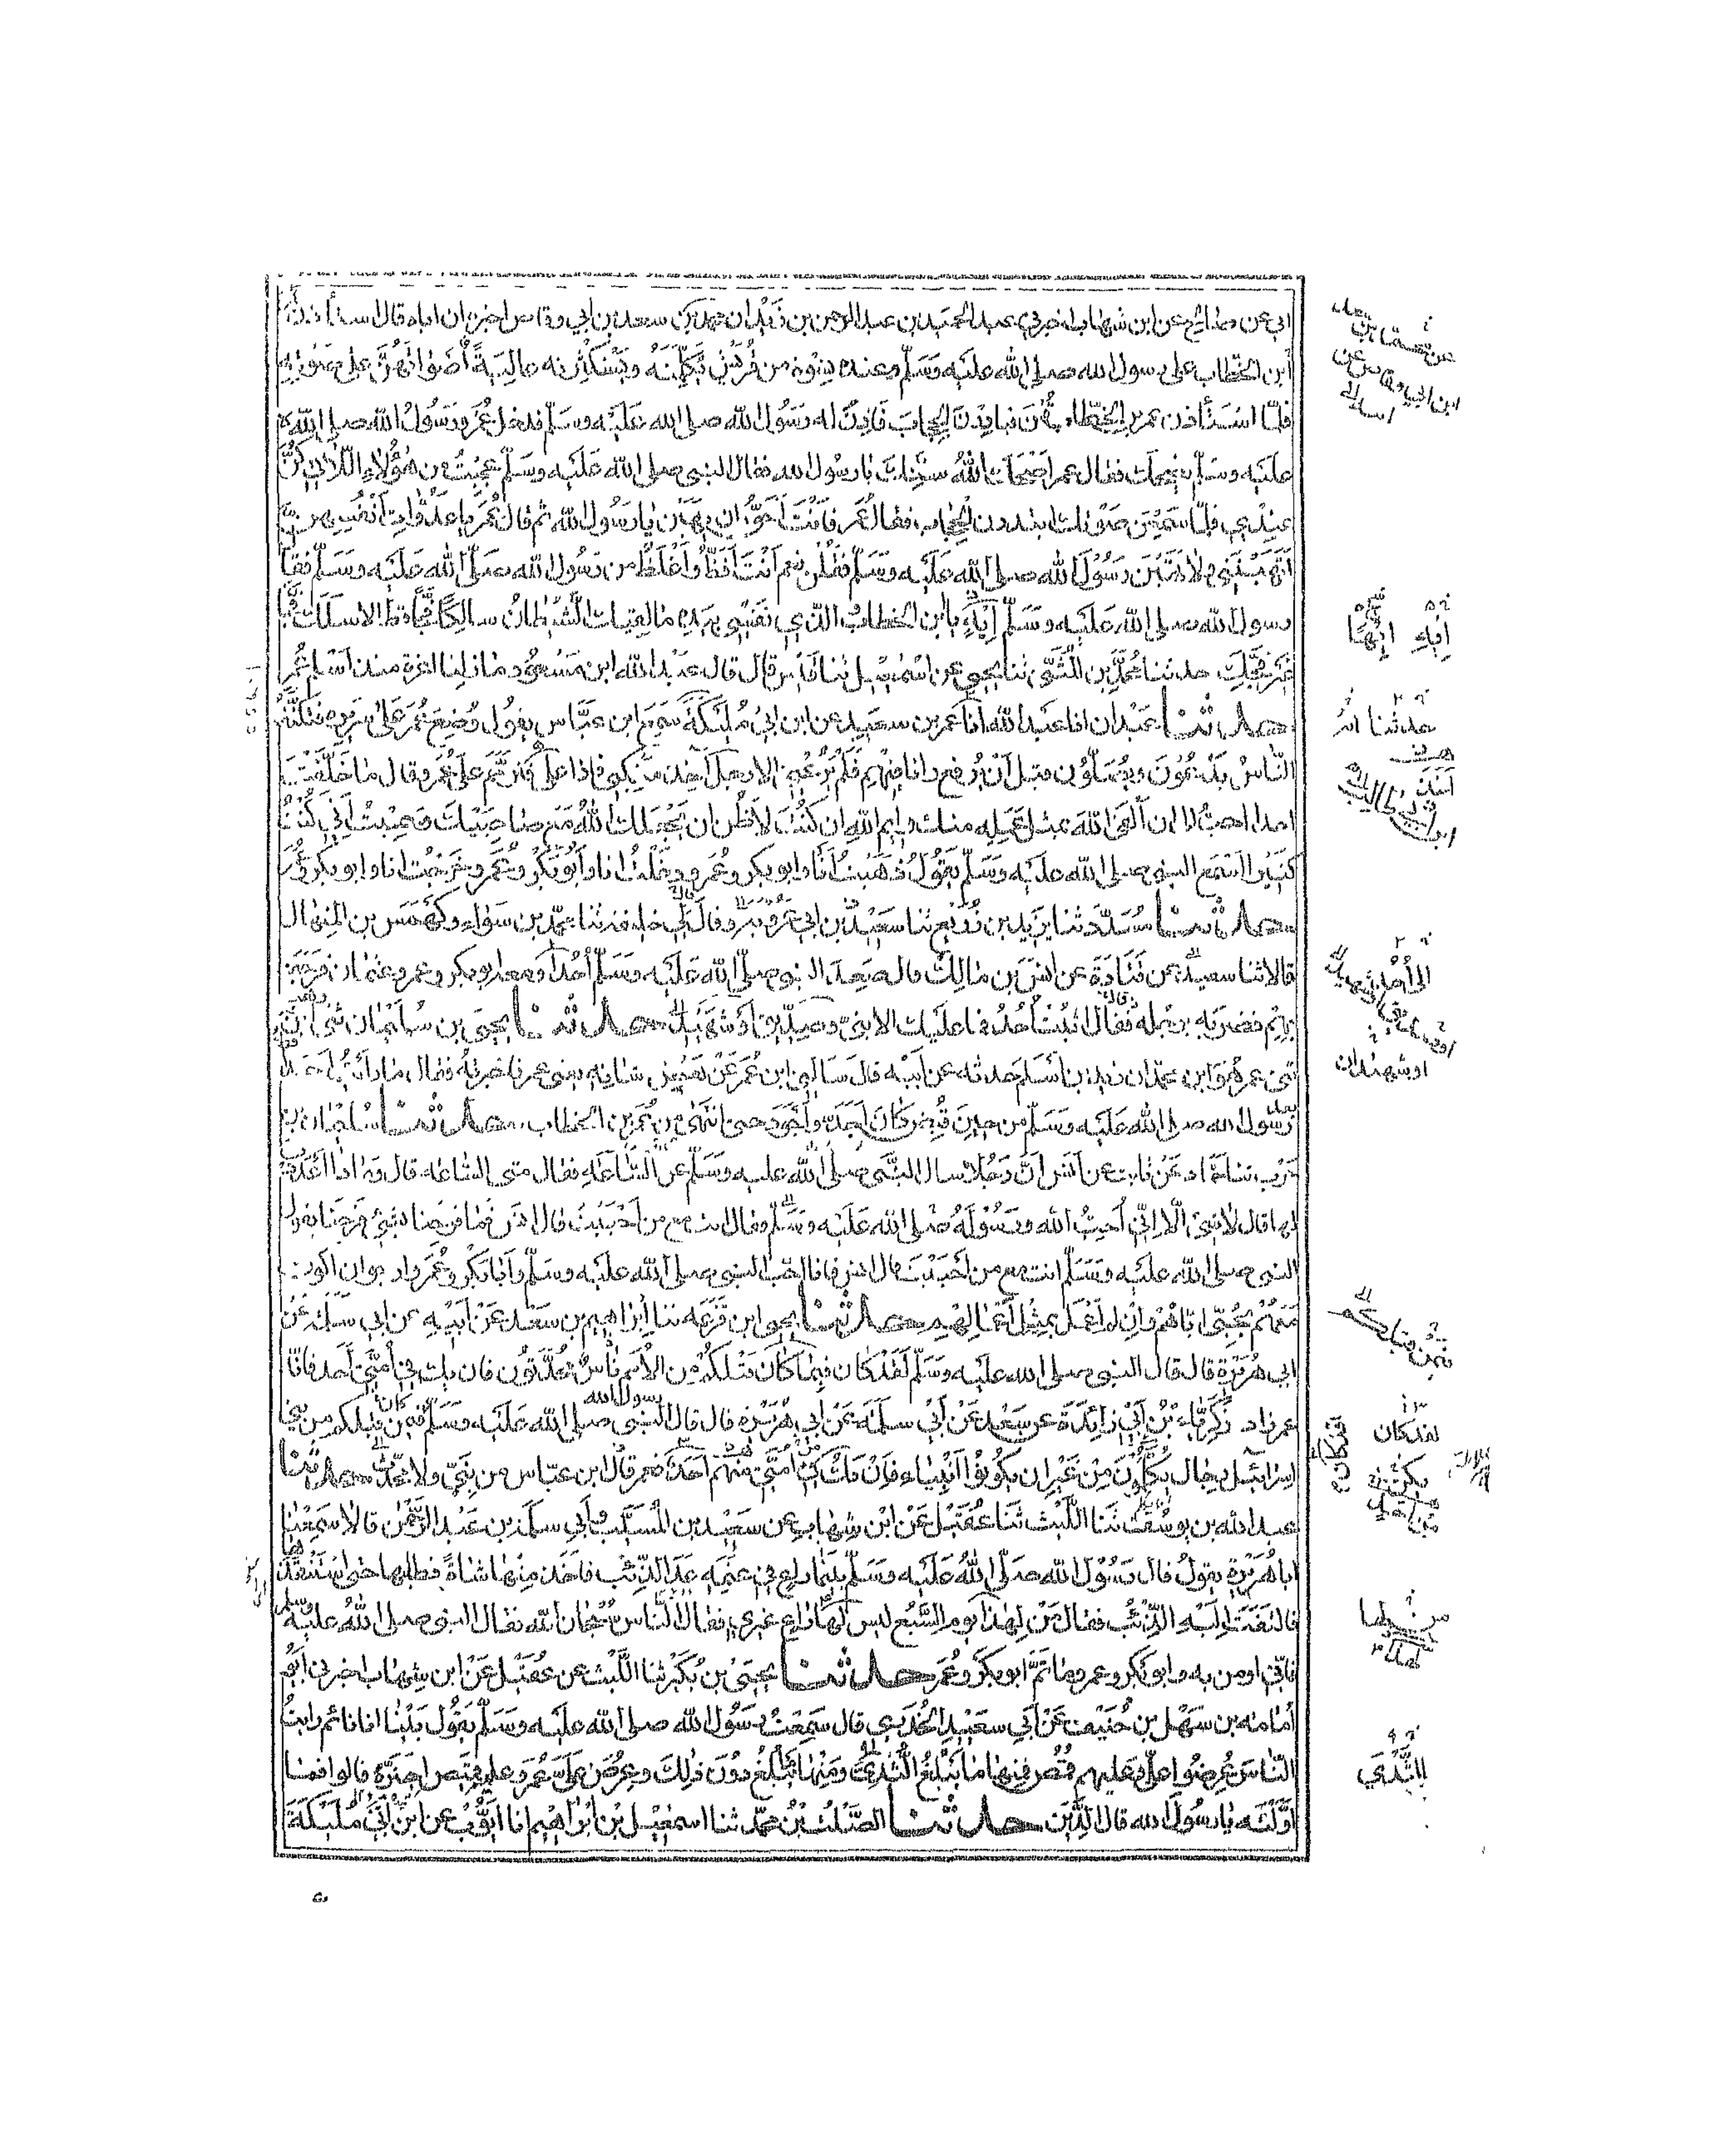 ابي عن صالح عن ابن شهاب اخبرني عبد الحميد بن عبد الرحمن بن زَيْد ان محمد بن سعد بن ابي وقاص اخبره ان اباه قال استأذن
ابن الخطّاب على رسول الله صلى الله عليه وسلّم وعنده نِسْوة من قُرَيْش يُكلِّمْنَهُ ويَسْتكثِرنه عاليةً أصْواتُهُنَّ على صوته
فلمّا اسْتَأذن عمر بن الخطّاب قُمْنَ فبادَرْنَ الحِجابَ فأذِنَ له رَسُول الله صلى الله عليه وسلّم فدخل عُمَر ورَسُولُ الله صلى الله
عليه وسلّم يضحك فقال عمر أضْحَكَ اللهُ سنّك يا رسُول الله فقال النبي صلى الله عليه وسلّم عجبتُ من هؤُلاءِ اللّاتي كُنَّ
عِنْدِي فلمّا سَمِعْنَ صَوْتك ابتدرن الحجاب فقال عُمَر فَأنْتَ أحَقُّ ان يَهَبْنَ يا رَسُول الله ثم قال عُمَر يا عدُوّات أنفُسِهن
أتَهَبْنَنِي ولا تَهَبْنَ رسُولَ الله صلى الله عليه وسلّم فقُلْنَ نعم أنْتَ أفَظُّ وأغْلَظُ من رسُول الله صلى الله عليه وسلّم فقال
رسول الله صلى الله عليه وسلّم إيْهٍ يا ابن الخطاب والذي نفسي بيده ما لقيك الشيطانُ سالكًا فجًّا قط الا سلك فجًّا
غير فجِّك حدثنا محمّد بن المُثَنَّى ثنا يحيى عن اسمعيل ثنا قيس قال قال عبد الله ابن مسعود ما زلنا اعزة منذ أسلم عُمر
حدثنا عَبْدان انا عبد الله انا عمر بن سعيد عن ابن ابي مُلَيْكَة سَمِعَ ابن عبّاس يقول وُضِعَ عُمَر على سريره فتكنّفه
النّاسُ يَدْعُونَ ويُصَلُّون قبل أنْ يُرفع وانا فيهم فلم يَرُعْني الا رجل آخذ منكبي فاذا عليّ فترحّم على عُمَر وقال ما خلّفت
احدا احبَّ الي ان ألْقى الله بمثل عَمَلِه منك وايم الله ان كنتُ لأظُنّ ان يَجْعَلك اللهُ مع صاحِبَيْك وحسِبْتُ أني كُنْتُ
كثيرا أسْمَع النبي صلى الله عليه وسلّم يقُول ذهَبْتُ أنا وابو بكر وعُمَر ودخلتُ انا وأبو بكر وعُمَر وخرجت انا وابو بكر وعمر
حدثنا مُسَدَّد ثنا يزيد بن زُرَيْع ثنا سعيد بن ابي عَرُوبة وقال لي خليفة ثنا محمّد بن سَواء وكَهْمَس بن المنهال
قالا ثنا سعيد عن قتادة عن انس بن مالك قال صعد النبي صلى الله عليه وسلّم أُحُدًا ومعه ابو بكر وعمر وعثمان فرجف
بهم فضربه برجله فقال اثبُت أُحُد فما عليك الا نبيّ وصدّيق او شهيد حدثنا يحيى بن سليمان ثني ابن وهب
ثني عمر هُوَ ابن محمّد ان زيد بن أسلم حدثه عن ابيه قال سألني ابن عُمَر عن بعض شانه يعني عمر فاخبرتُه فقال ما رأيتُ احدا
رسول الله صلى الله عليه وسلّم من حين قُبِض كان أجدَّ وأجْوَدَ حتى انتهى من عُمَر بن الخطاب حدثنا سُليمان بن
حَرْب ثنا حمّاد عن ثابت عن أنس أنّ رجُلا سال النبّي صلى الله عليه وسلّم عن السّاعة فقال متى السّاعة قال وماذا أعْدَدْت
لها قال لا شيئ الّا إنّي أُحِبُّ الله ورسُولَهُ صلى الله عليه وسلّم وقال انت مع من أحْبَبْتَ قال انس فما فرحنا بشيئ فرحنا بقول
النبي صلى الله عليه وسلّم انت مع من أحْبَبْتَ قال انس فانا أحبّ النبي صلى الله عليه وسلّم وأبا بكر وعُمَر وارجو ان اكون
مَعَهُمْ بحُبّي ايّاهُم وإن لم أعْمَل بمثل أعمالِهم حدثنا يحيى ابن قزعة ثنا إبراهيم بن سعد عن أبيه عن ابي سلمة عن
ابي هُرَيْرة قال قال النبي صلى الله عليه وسلّم لَقَدْ كان فيما كان قبلكم من الأُمَم ناسٌ مُحدَّثُون فان يك في أمّتي أحد فانه
عمر زاد زكريّاء بن أبي زائدة عن سعد عن أبي سلمة عن ابي هُرَيْرة قال قال النبي صلى الله عليه وسلّم فيمن قبلكم من بني
اسرائيل رجال يُكلَّمُونَ مِنْ غَيْرِ ان يكونُوا أنبياء فإنْ يكُ في أمّتي منهم أحَدٌ فعمر قال ابن عبّاس من نبيّ ولا محدّث حدثنا
عبد الله بن يوسُف ثنا اللّيث ثنا عُقَيْل عن ابن شهاب عن سعيد بن المُسَيّب وأبي سلمة بن عبد الرّحمن قالا سَمِعْنا
ابا هُرَيْرة يقولُ قال رسُول الله صلّى اللهُ عليه وسلّم بَيْنما راعٍ في غنمه عَدَا الذّئب فأخذ منها شاةً فطلبها حتى استنقذها
فالتفَتَ إليه الذّئبُ فقال مَنْ لها يوم السَّبُع ليس لها راعٍ غيري فقال النّاسُ سُبْحان الله فقال النبي صلى الله عليه وسلم
فاني اومن به وابو بكر وعمر وما ثَمَّ ابو بكر وعُمَر حدثنا يحيى بن بُكَيْر ثنا اللّيث عن عُقَيْل عن ابن شهاب اخبرني أبُو
أُمامة بن سَهْل بن حُنَيْف عن أبي سعيد الخُدْري قال سَمِعْتُ رسُول الله صلى الله عليه وسلّم يقُول بَيْنا انا نائم رايتُ
النّاسَ عُرِضُوا عليَّ وعليهم قُمُص فمنها ما يَبْلُغُ الثُّدِيَّ ومنها ما يَبْلُغُ دُونَ ذلك وعُرِضَ عليَّ عُمَر وعليه قميص اجترّه قالوا فما
أوّلته يا رسُول الله قال الدِّين حدثنا الصّلت بن محمّد ثنا اسمعيل بن إبراهيم انا أيّوب عن ابن أبي مُلَيْكَة
ابن ابي وقاص عن
إيهِ إيْهًا
حدثنا
ابن ابي طالب
او شهيدان
لقد كان
الثَّدْيَ